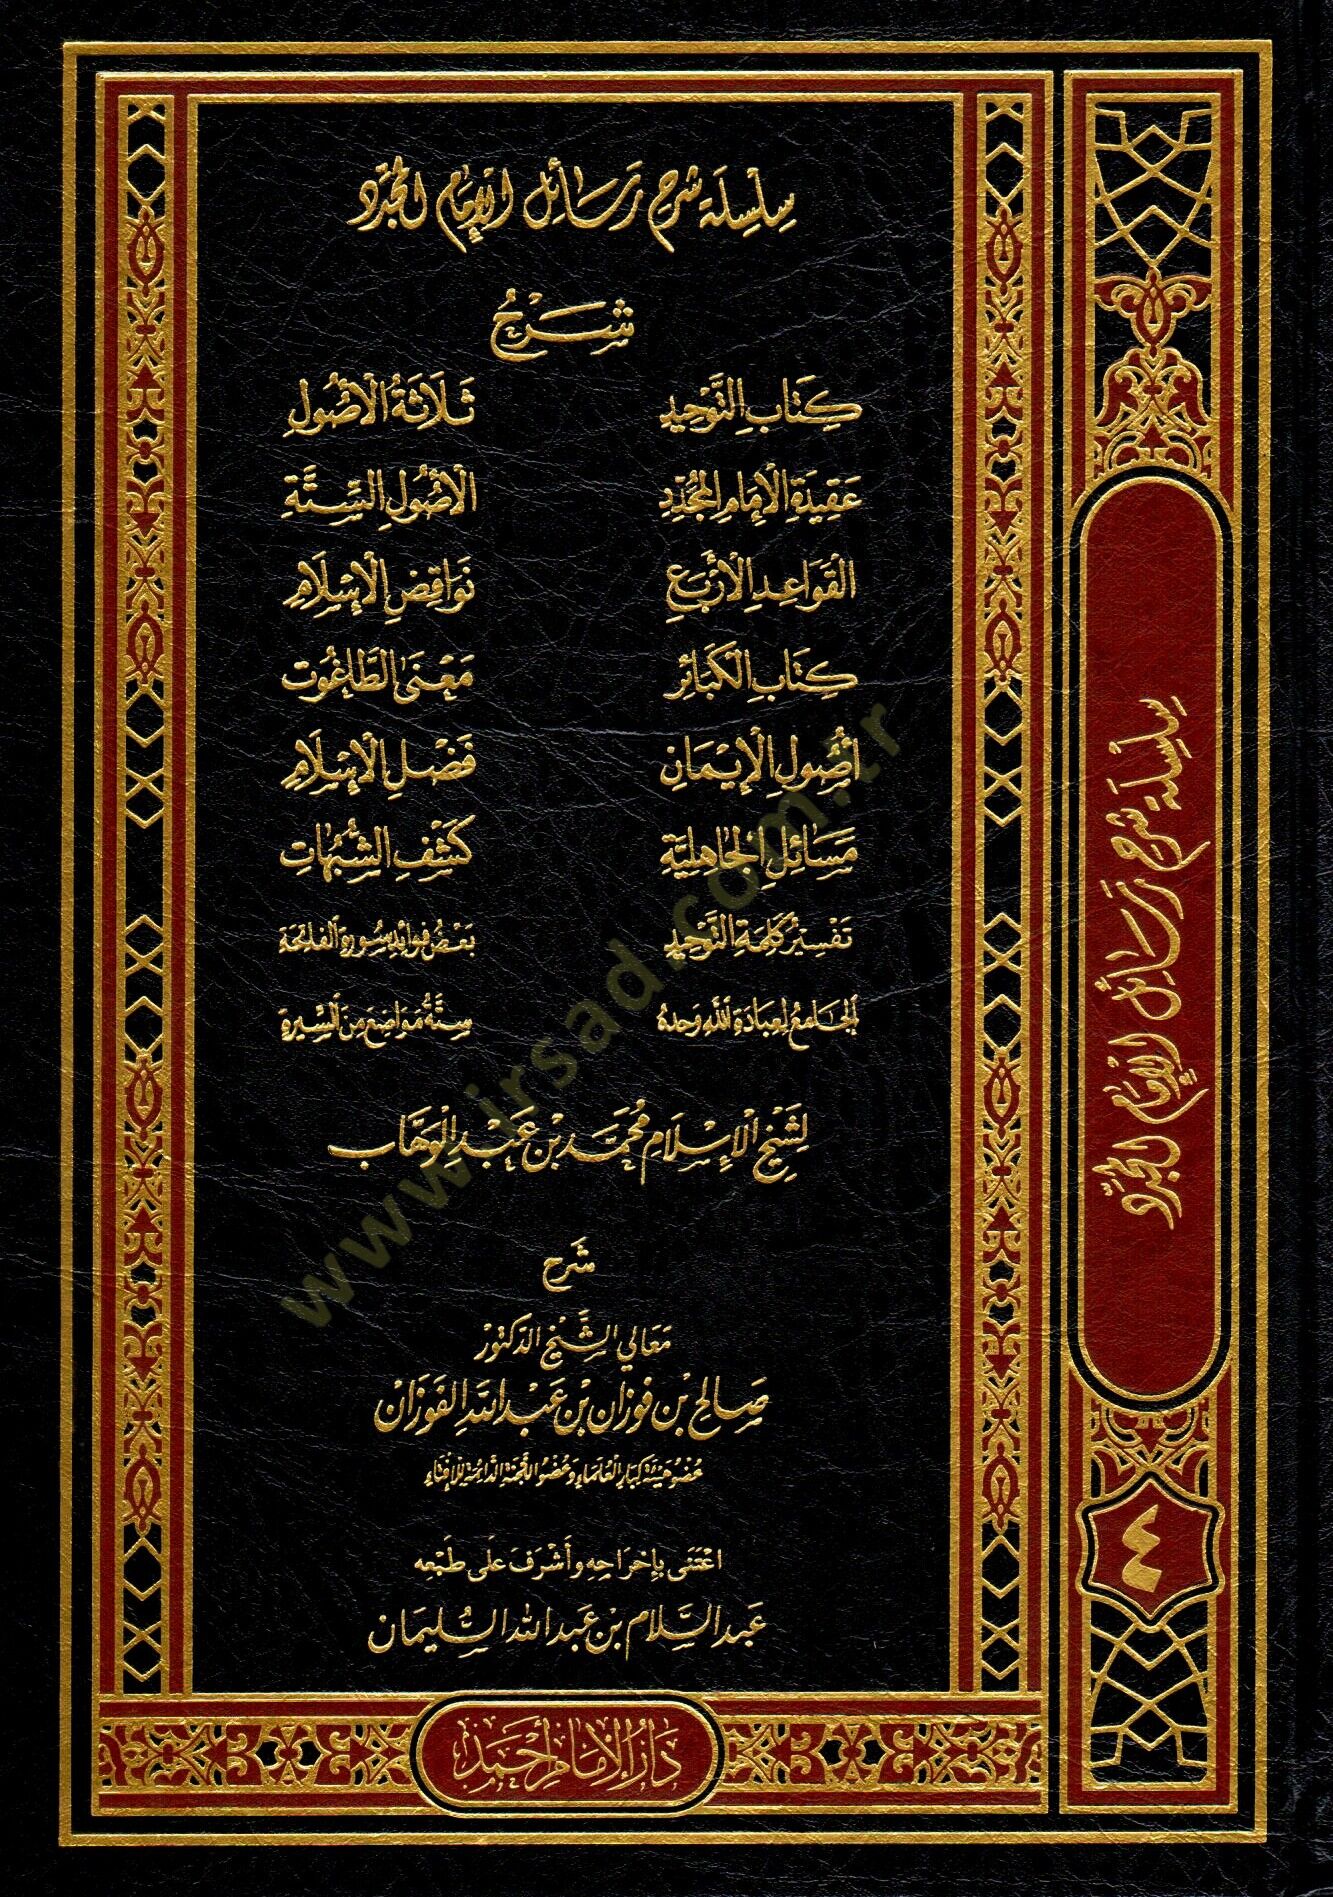 سِلْسِلَة شَرح رَسَائِل الإِمَام المُجَدِّد
شَرْحُ
كِتَابِ التَّوْحِيدِ
ثَلَاثَةُ الْأُصُولِ
عَقِيدَةِ الْإِمَامِ الْمُجَدِّدِ
الْأُصُولِ السِّتَّةِ
الْقَوَاعِدِ الْأَرْبَعِ
نَوَاقِضِ الْإِسْلَامِ
كِتَابِ الْكَبَائِرِ
مَعْنَى الطَّاغُوتِ
أُصُولِ الْإِيْمَانِ
فَضْلِ الْإِسْلَامِ
مَسَائِلِ الْجَاهِلِيَّةِ
كَشْفِ الشُّبُهَاتِ
تَفْسِيْرُ كَلِمَةِ التَّوْحِيدِ
بَعْضُ فَوَائِدِ سُورَةِ الْفَاتِحَةِ
الْجَامِعُ لِعِبَادَةِ اللهِ وَحْدَهُ
سِتَّةُ مَوَاضِعَ مِنَ السِّيرَةِ
لِشَيْخِ الْإِسْلَامِ مُحَمَّد بْن عَبْد الْوَهَّاب
شَرَح
مَعَالِي الشَّيْخِ الدكتُور
صَالِح بْن فَوْزَان بْن عَبْد اللهِ الفَوْزَان
عُضْو هَيْئَة كِبَارِ الْعُلَمَاءِ وَعُضْو اللَّجْنَةِ الدَّائِمَةِ لِلْإِفْتَاءِ
اعْتَنَى بِإِخْرَاجِهِ وَأَشْرَفَ عَلَى طَبْعِهِ
عَبْد السَّلَام بْن عَبْد الله السُّلَيمَان
دَارُ الْإِمَامِ أَحْمَد
سِلْسِلَة شَرح رَسَائِل الإِمَام المُجَدِّد
www.irsad.com.tr